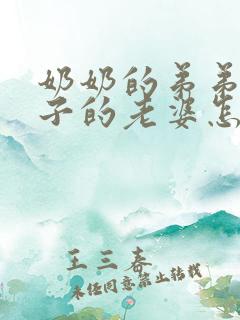 奶奶的弟弟
子的老婆怎
王三春
未经同意禁止转载